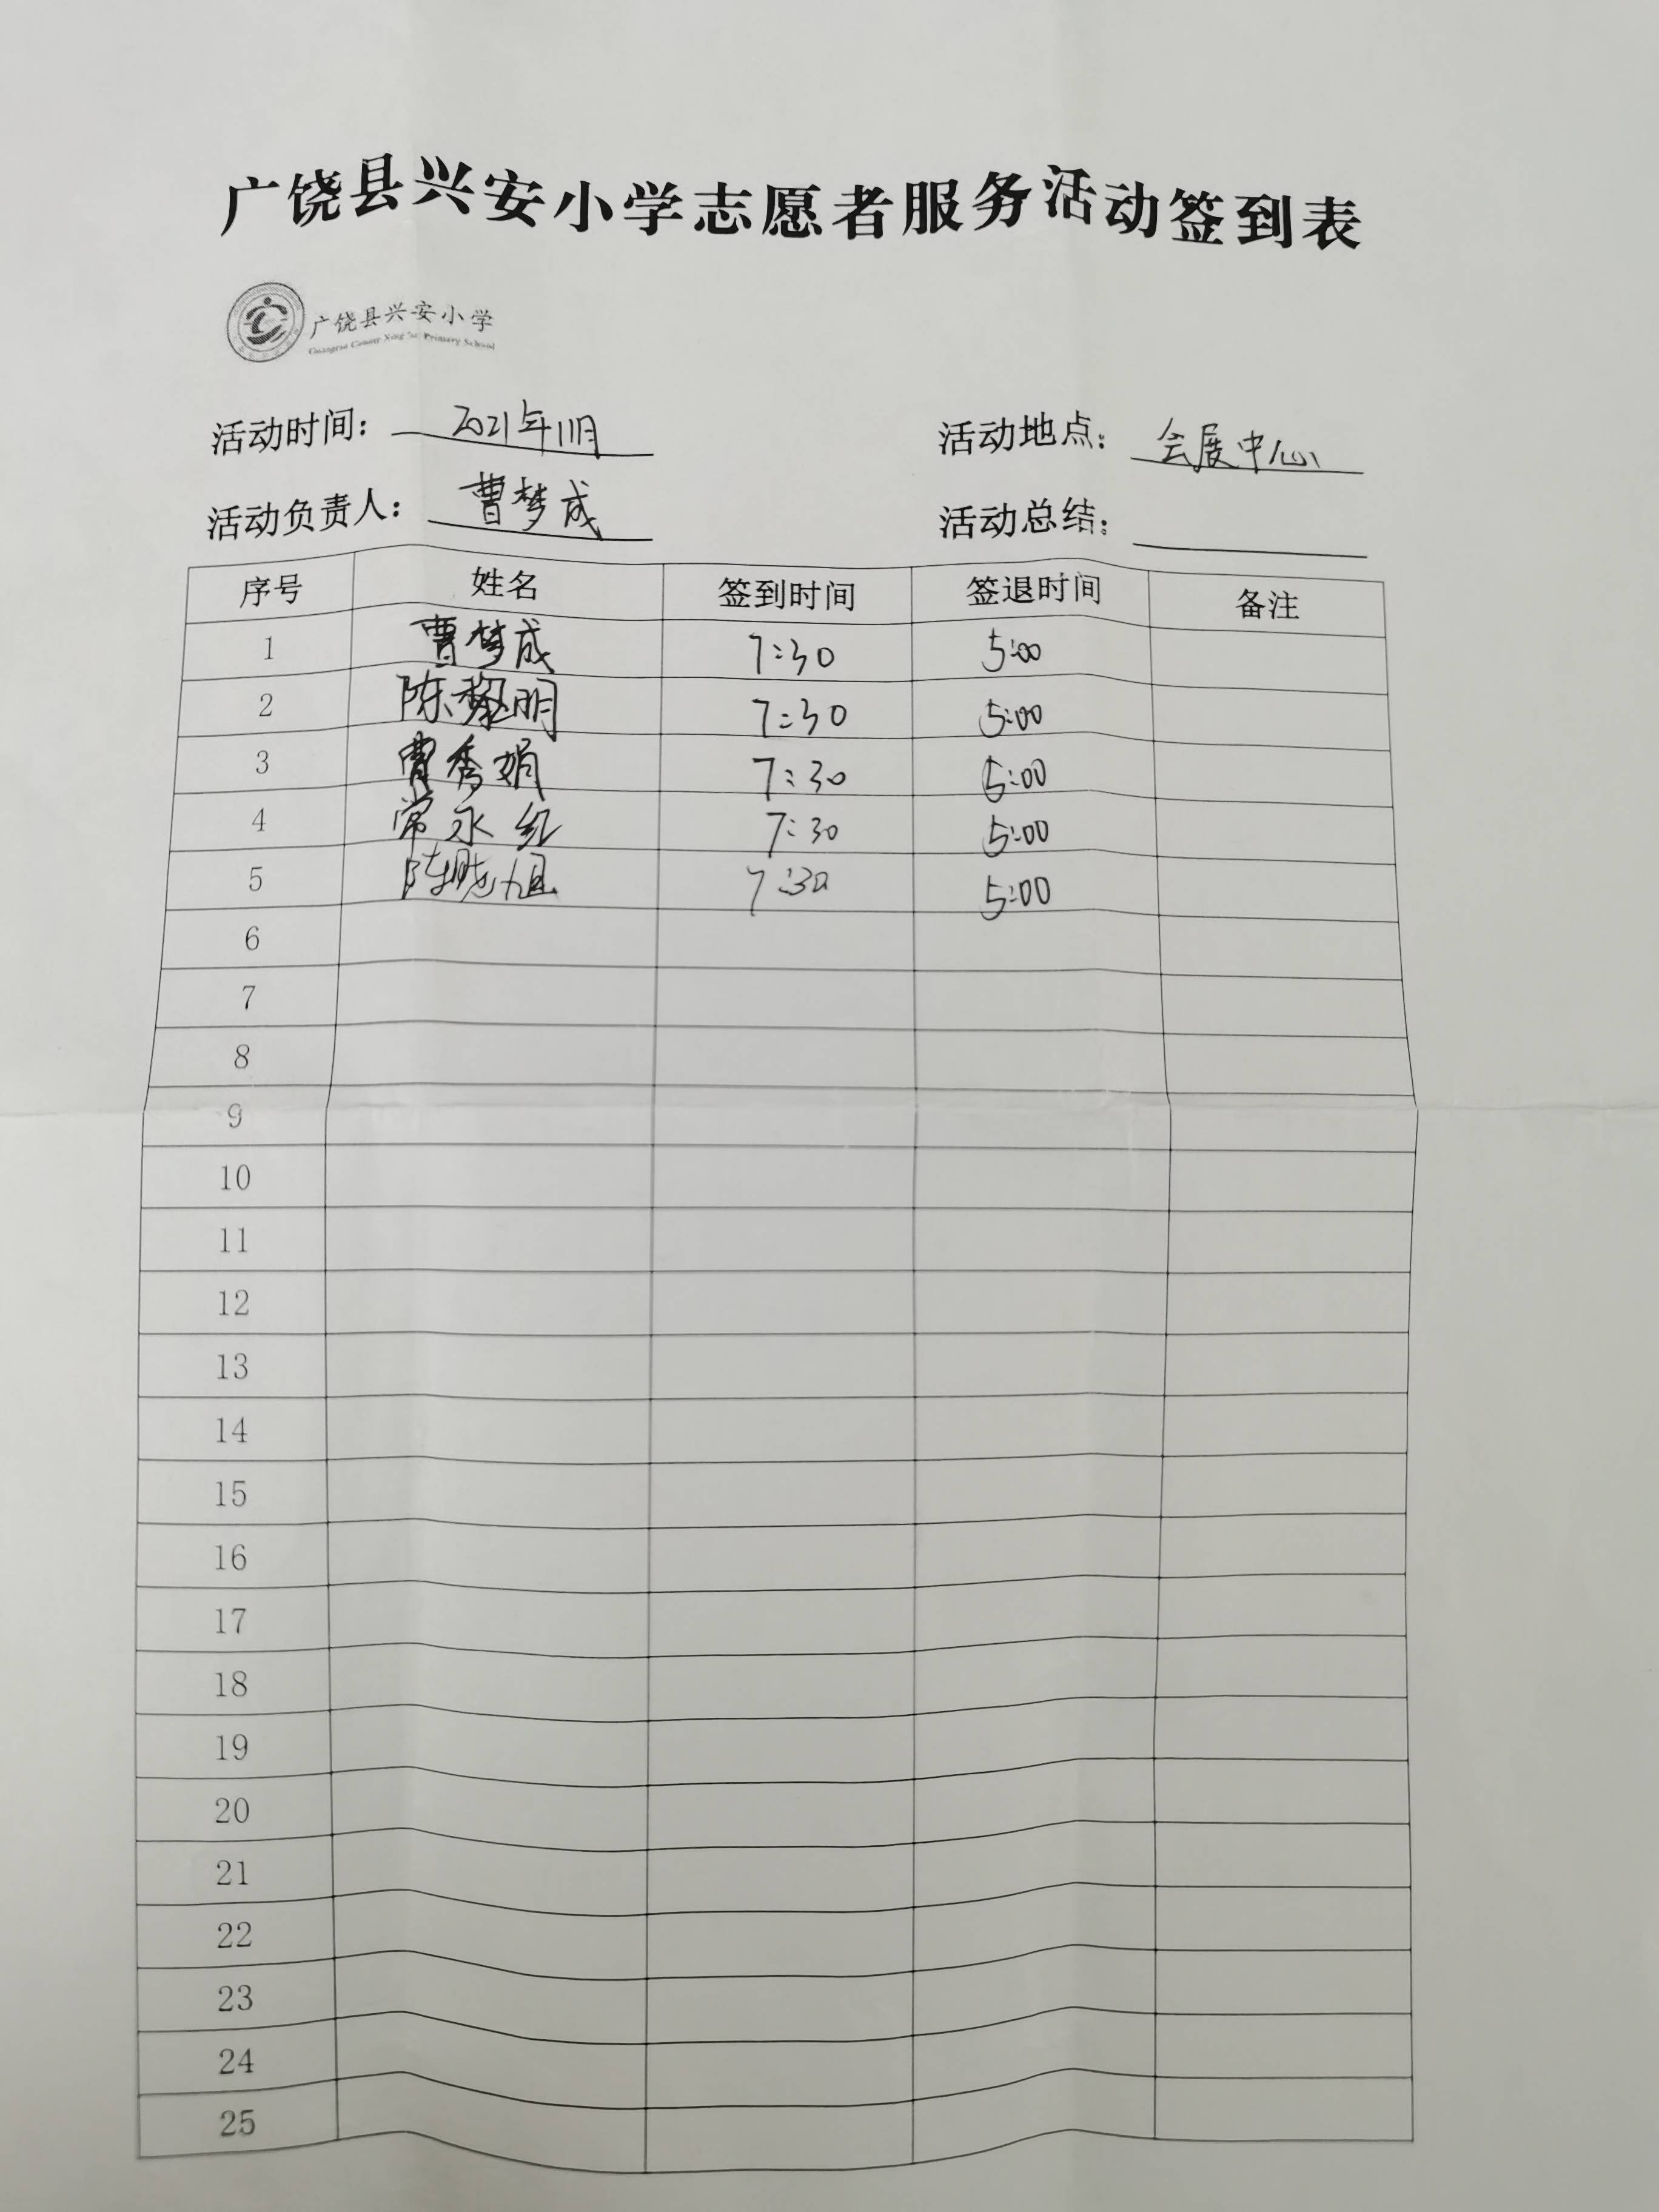 广饶县兴安小学志愿者服务活动签到表
广饶县兴安小学
Guangrao County Xing'an Primary School
活动时间： 2021年11月 活动地点： 会展中心
活动负责人： 曹梦成 活动总结：
序号 姓名 签到时间 签退时间 备注
1 曹梦成 7:30 5:00
2 陈黎明 7:30 5:00
3 曹秀娟 7:30 5:00
4 常永红 7:30 5:00
5 陈晓旭 7:30 5:00
6
7
8
9
10
11
12
13
14
15
16
17
18
19
20
21
22
23
24
25